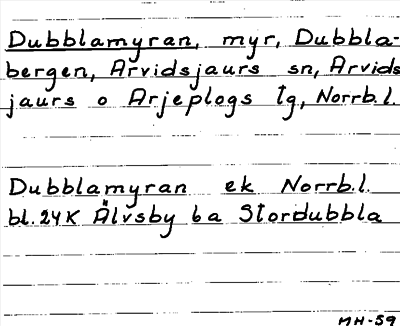 Dubblamyran, myr, Dubbla-
bergen, Arvidsjaurs sn, Arvids
jaurs o Arjeplogs tg, Norrb.l.
Dubblamyran ek Norrb.l.
bl. 24K Älvsby 6a Stordubbla
MH-59